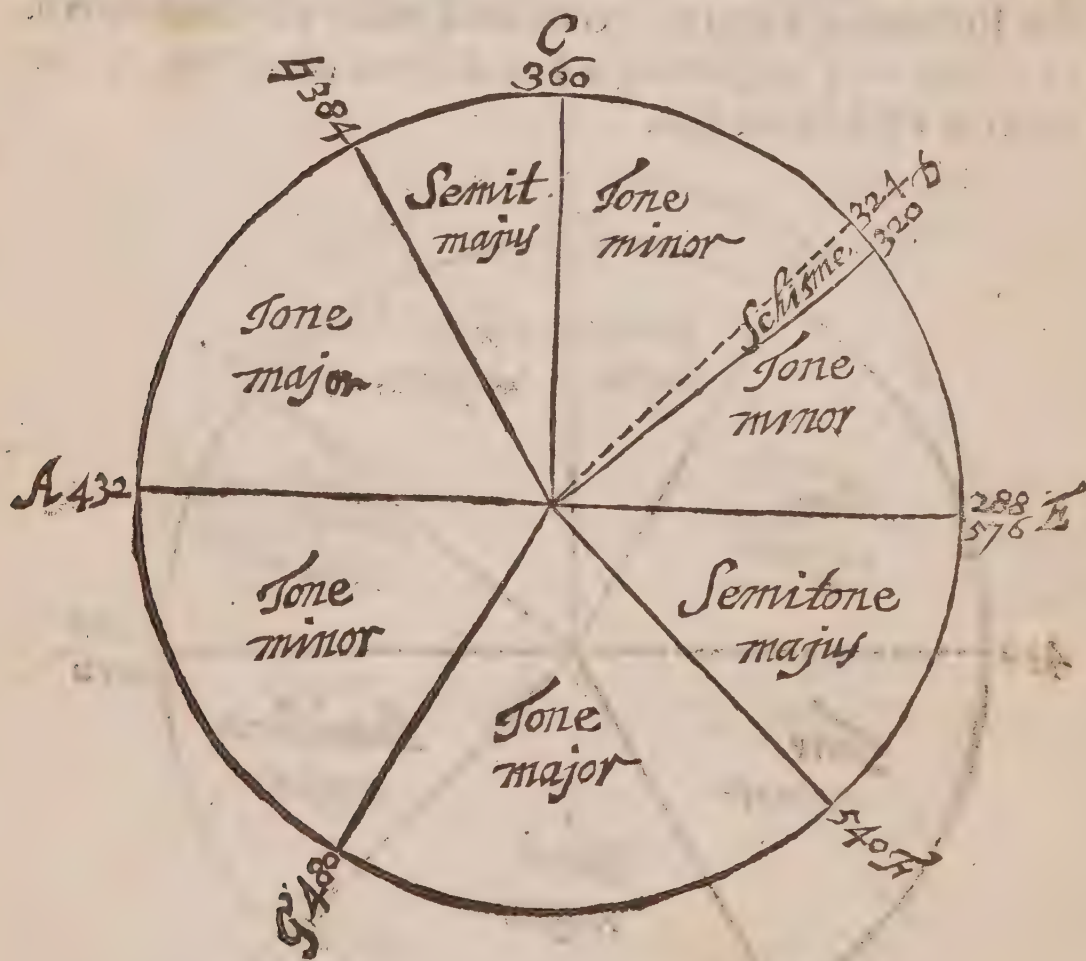 C
360
Semit
majus
Tone
minor
324 D
320
Schisme
Tone
minor
288
576 E
Semitone
majus
540 F
Tone
major
G 480
Tone
minor
A 432
Tone
major
♮ 384